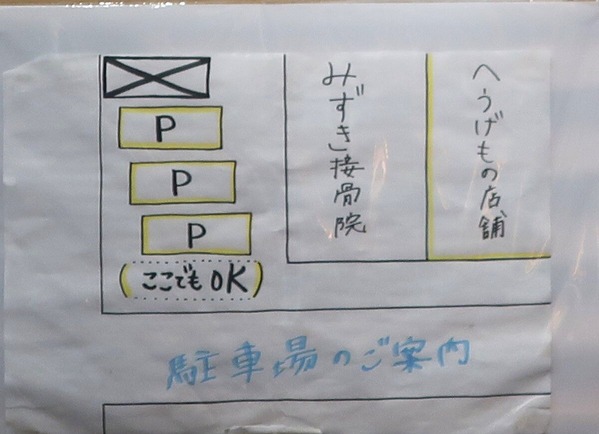 P
P
P
(ここでもOK)
みずき接骨院
へうげもの店舗
駐車場のご案内